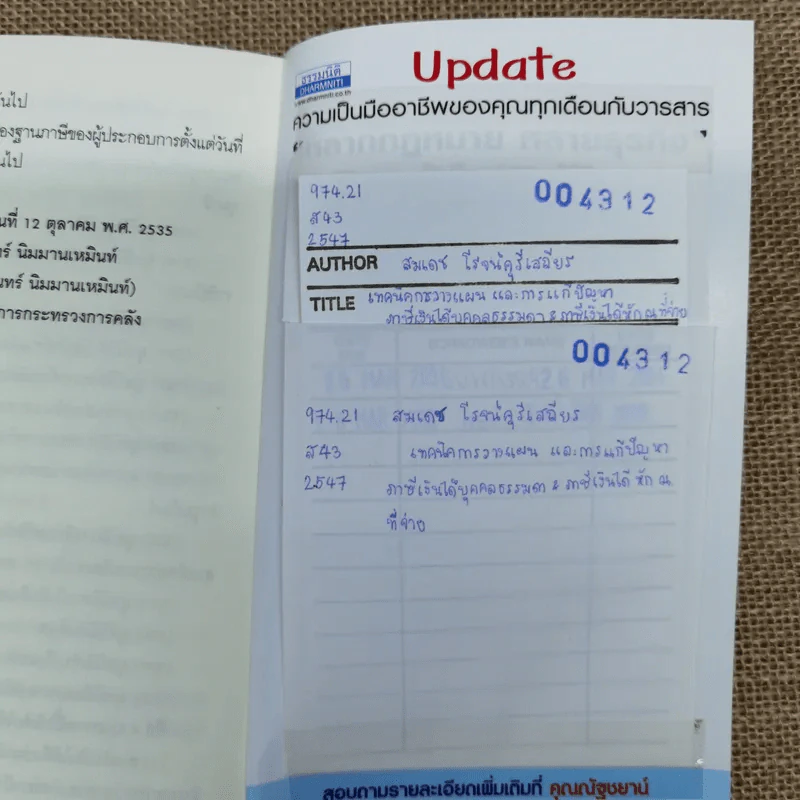 ันไป
องฐานภาษีของผู้ประกอบการตั้งแต่วันที่
นไป
นที่ 12 ตุลาคม พ.ศ. 2535
ทร์ นิมมานเหมินท์
นทร์ นิมมานเหมินท์)
การกระทรวงการคลัง
ธรรมนิติ
DHARMNITI
www.dharmniti.co.th
Update
ความเป็นมืออาชีพของคุณทุกเดือนกับวารสาร
974.21 004312
ส43
2547
AUTHOR สมเดช โรจน์คุรีเสถียร
TITLE เทคนิคการวางแผน และการแก้ปัญหา
ภาษีเงินได้บุคคลธรรมดา & ภาษีเงินได้หัก ณ ที่จ่าย
004312
974.21 สมเดช โรจน์คุรีเสถียร
ส43 เทคนิคการวางแผน และการแก้ปัญหา
2547 ภาษีเงินได้บุคคลธรรมดา & ภาษีเงินได้ หัก ณ
ที่จ่าย
สอบถามรายละเอียดเพิ่มเติมที่ คุณณัฐชยาน์